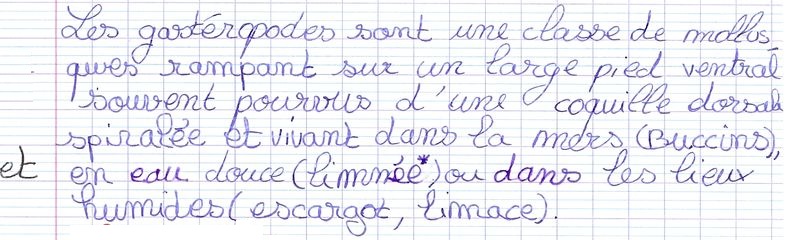 Les gastéropodes sont une classe de mollus_
ques rampant sur un large pied ventral
souvent pourvus d'une coquille dorsale
spiralée et vivant dans la mers (Buccins),
et en eau douce (limnée*) ou dans les lieux
humides (escargot, limace).